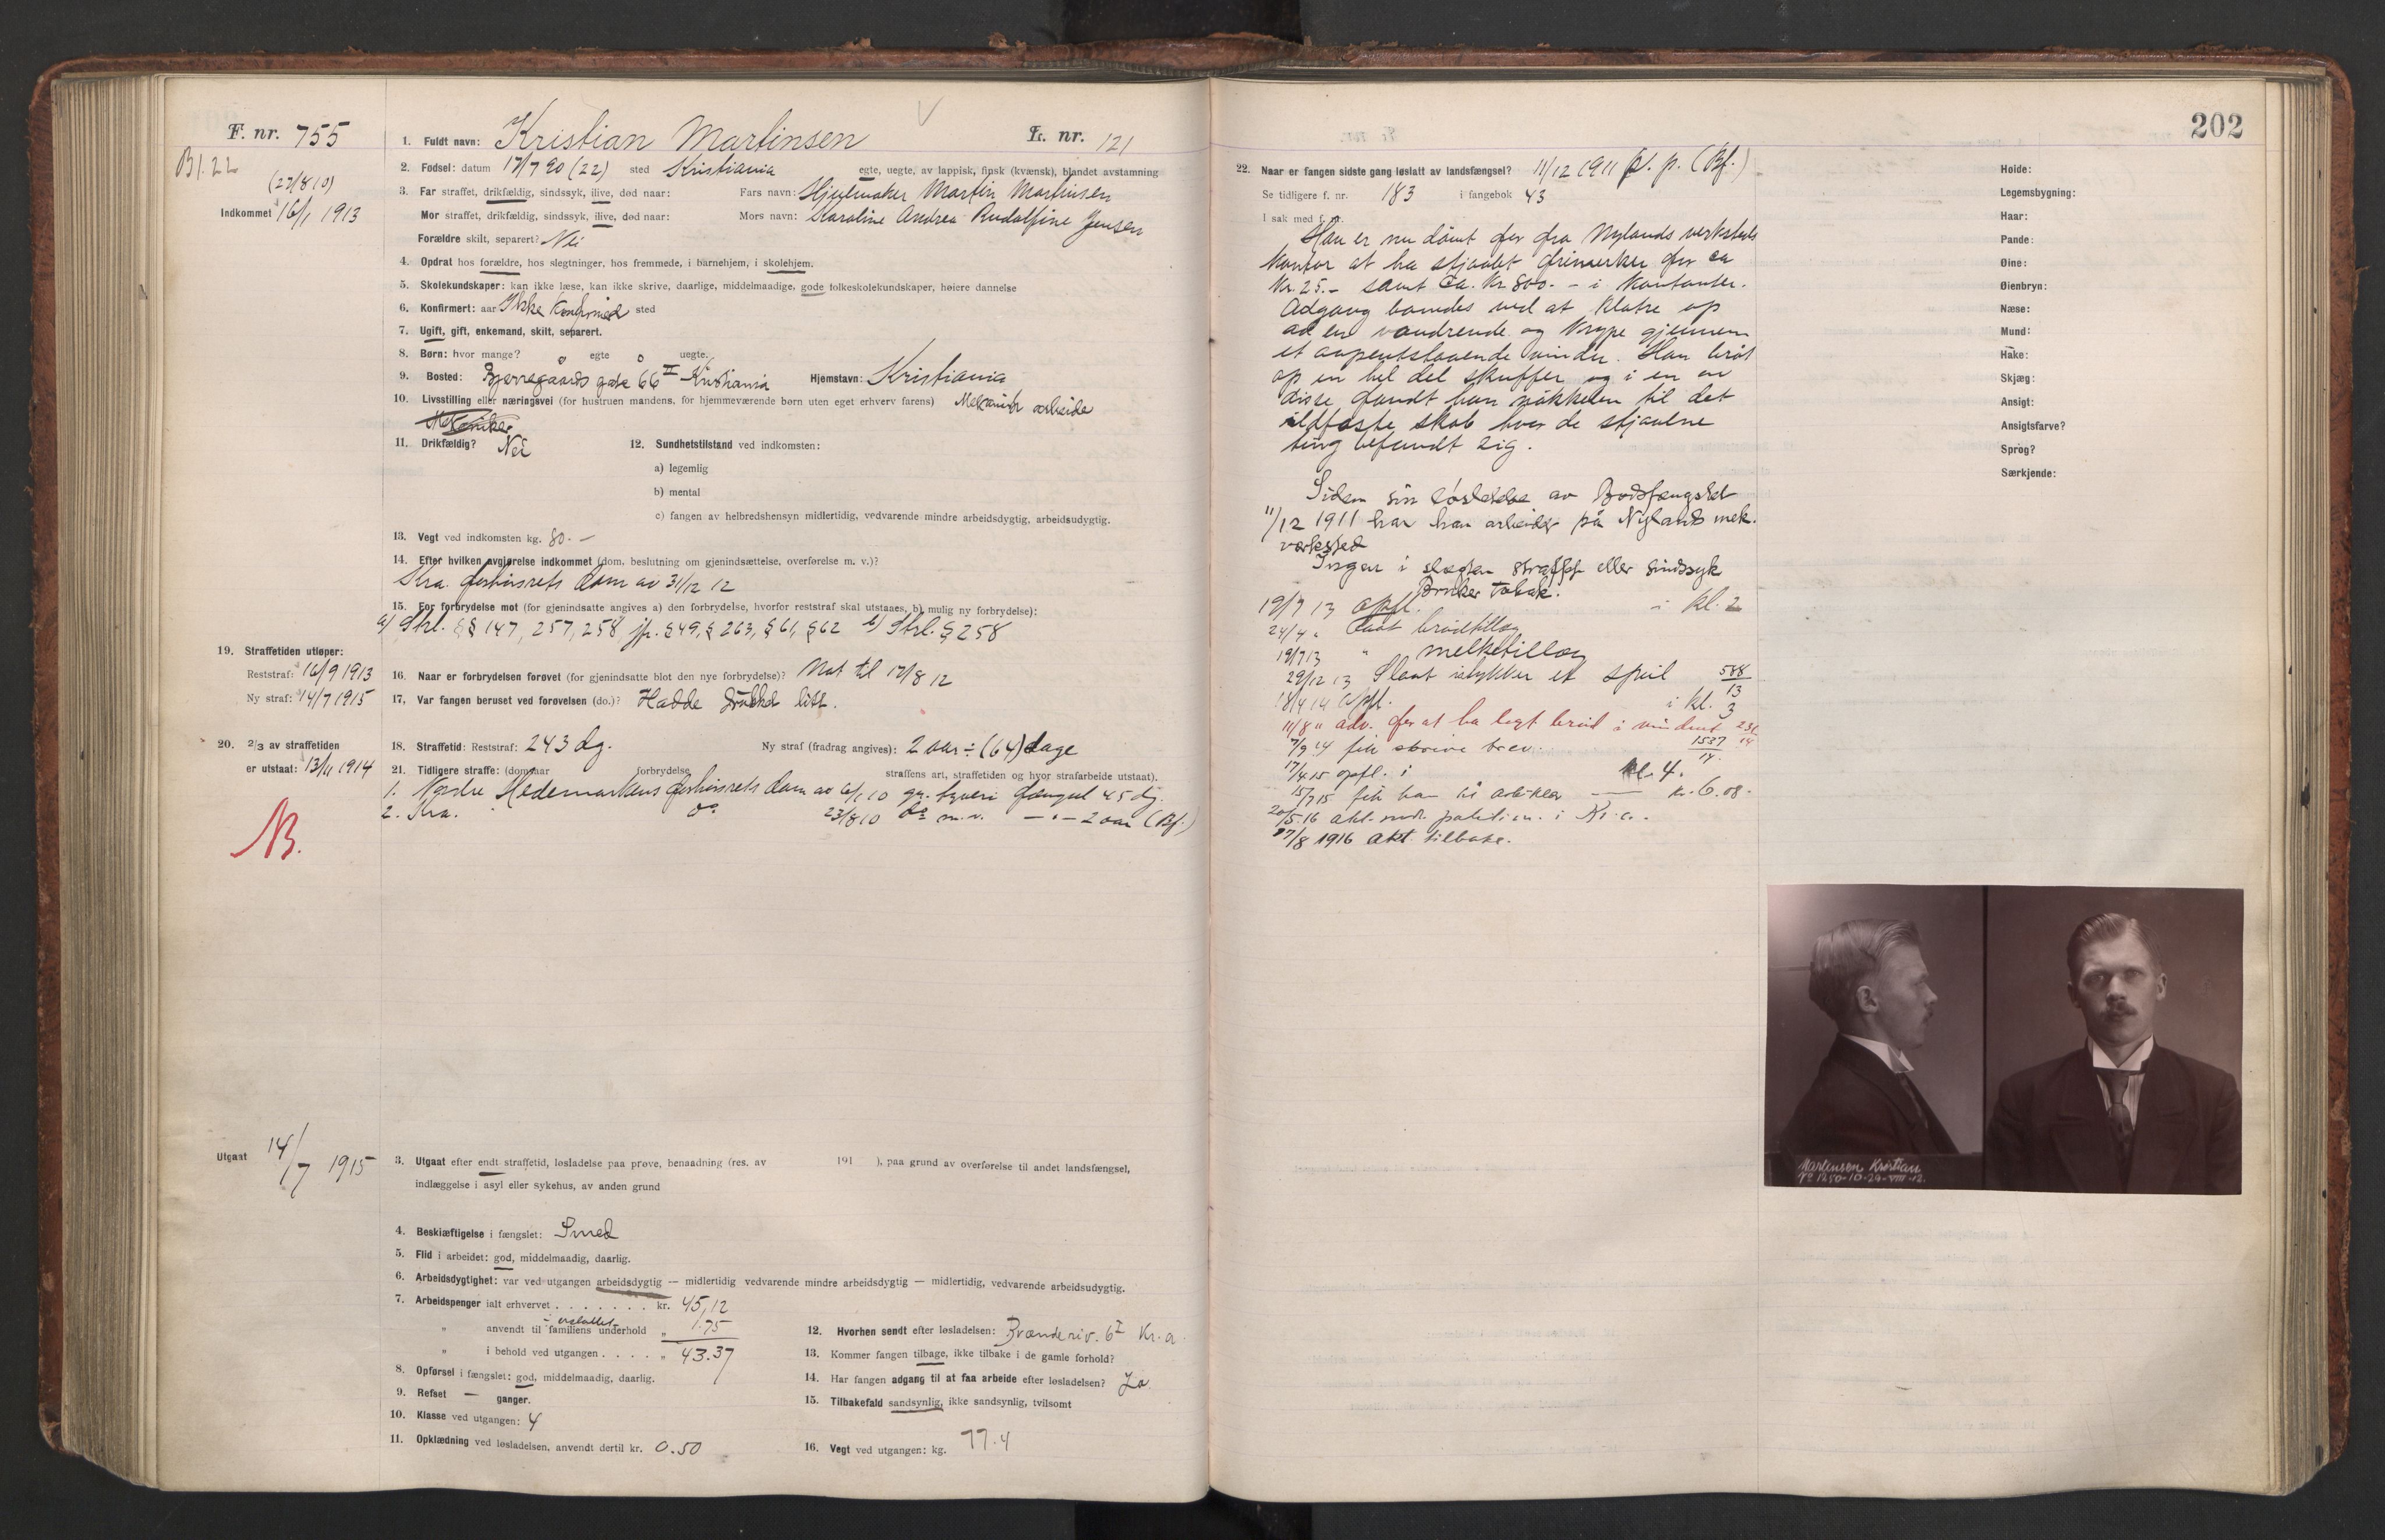 F. nr. 755
Bl. 22
(23/8 10)
Indkommet 16/1 1913
1. Fuldt navn: Kristian Martinsen
L. nr. 121
2. Fødsel: datum 17/7 90 (22) sted Kristiania egte, uegte, av lappisk, finsk (kvænsk), blandet avstamning
3. Far straffet, drikfældig, sindssyk, ilive, død naar: Fars navn: Hjulmaker Martin Martinsen
Mor straffet, drikfældig, sindssyk, ilive, død naar: Mors navn: Karoline Andrea Rudolfine Jensen
Forældre skilt, separert? Nei
4. Opdrat hos forældre, hos slegtninger, hos fremmede, i barnehjem, i skolehjem.
5. Skolekundskaper: kan ikke læse, kan ikke skrive, daarlige, middelmaadige, gode folkeskolekundskaper, høiere dannelse
6. Konfirmert: aar Ikke Konfirmed sted
7. Ugift, gift, enkemand, skilt, separert.
8. Børn: hvor mange? 0 egte 0 uegte.
9. Bosted: Bjerregaards gate 66 II Kristiania Hjemstavn: Kristiania
10. Livsstilling eller næringsvei (for hustruen mandens, for hjemmeværende børn uten eget erhverv farens) Mekanisk arbeider
Mekaniker
11. Drikfældig? Nei 12. Sundhetstilstand ved indkomsten:
a) legemlig
b) mental
c) fangen av helbredshensyn midlertidig, vedvarende mindre arbeidsdygtig, arbeidsudygtig.
13. Vegt ved indkomsten kg. 80.-
14. Efter hvilken avgjørelse indkommet (dom. beslutning om gjenindsættelse, overførelse m. v.)?
Kra. forhørsrets dom av 31/12 12
15. For forbrydelse mot (for gjenindsatte angives a) den forbrydelse, hvorfor reststraf skal utstaaes, b) mulig ny forbrydelse):
a) Strl. §§ 147, 257, 258 jfr. § 49, § 263, § 61, § 62 b) Strl. § 258
19. Straffetiden utløper:
Reststraf: 16/9 1913
Ny straf: 14/7 1915
16. Naar er forbrydelsen forøvet (for gjenindsatte blot den nye forbrydelse)? Nat til 17/8 12
17. Var fangen beruset ved forøvelsen (do.)? Hadde drukket litt.
20. 2/3 av straffetiden
er utstaat: 13/11 1914
18. Straffetid: Reststraf: 243 dg. Ny straf (fradrag angives): 2 aar ÷ (64) dage
21. Tidligere straffe: (dom aar forbrydelse straffens art, straffetiden og hvor strafarbeide utstaat).
1. Nordre Hedemarkens forhørsrets dom av 6/1 10 gr. tyveri fængsel 45 dg.
2. Kra. do 23/8 10 do m. v. — " — 2 aar (Bf.)
NB.
Utgaat 14/7 1915
3. Utgaat efter endt straffetid, løsladelse paa prøve, benaadning (res. av 191 ), paa grund av overførelse til andet landsfængsel,
indlæggelse i asyl eller sykehus, av anden grund
4. Beskjæftigelse i fængslet: Smed
5. Flid i arbeidet: god, middelmaadig, daarlig.
6. Arbeidsdygtighet: var ved utgangen arbeidsdygtig — midlertidig vedvarende mindre arbeidsdygtig — midlertidig, vedvarende arbeidsudygtig.
7. Arbeidspenger ialt erhvervet . . . . . . . kr. 45,12
" anvendt til familiens underhold " 1.75
" i behold ved utgangen . . . . " 43.37
8. Opførsel i fængslet: god, middelmaadig, daarlig.
9. Refset — ganger.
10. Klasse ved utgangen: 4
11. Opklædning ved løsladelsen, anvendt dertil kr. 0.50
12. Hvorhen sendt efter løsladelsen: Brænderiv. 6 I Kr.a.
13. Kommer fangen tilbage, ikke tilbake i de gamle forhold?
14. Har fangen adgang til at faa arbeide efter løsladelsen? Ja.
15. Tilbakefald sandsynlig, ikke sandsynlig, tvilsomt
16. Vegt ved utgangen: kg. 77.4
202
22. Naar er fangen sidste gang løslatt av landsfængsel? 11/12 1911 p. p. (Bf.)
Se tidligere f. nr. 183 i fangebok 43
I sak med f. nr.
Han er nu dømt for fra Nylands verksteds
kontor at ha stjaalet frimerker for ca
kr. 25.- samt ca. kr. 800.- i kontanter.
Adgang banedes ved at klatre op
ad en vandrende og krype gjennem
et aapentstaaende vindu. Han brøt
op en hel del skuffer og i en av
disse fandt han nøkkelen til det
ildfaste skab hvor de stjaalne
ting befandt sig.
Siden sin løslatelse av Bodsfængslet
11/12 1911 har han arbeidet på Nylands mek.
verksted
Ingen i slegten straffet eller sindssyk
Bruker tobak.
19/7 13 opfl. i kl. 2
24/4 " faat brødtillæg
19/7 13 " melketillæg
29/12 13 Slaat istykker et speil 588/13
18/4 14 opfl. i kl. 3
11/8 " adv. for at ha lagt brød i vinduet 231/14
7/9 14 fik skrive brev. 1537/14
17/4 15 opfl. i kl. 4.
15/7 15 fik han kr. 6.08.
20/5 16 akt. i Kr.a.
17/8 1916 akt. tilbake.
Høide:
Legemsbygning:
Haar:
Pande:
Øine:
Øienbryn:
Næse:
Mund:
Hake:
Skjæg:
Ansigt:
Ansigtsfarve?
Sprog?
Særkjende:
Martinsen Kristian
No 1250-10-29-VIII-12.